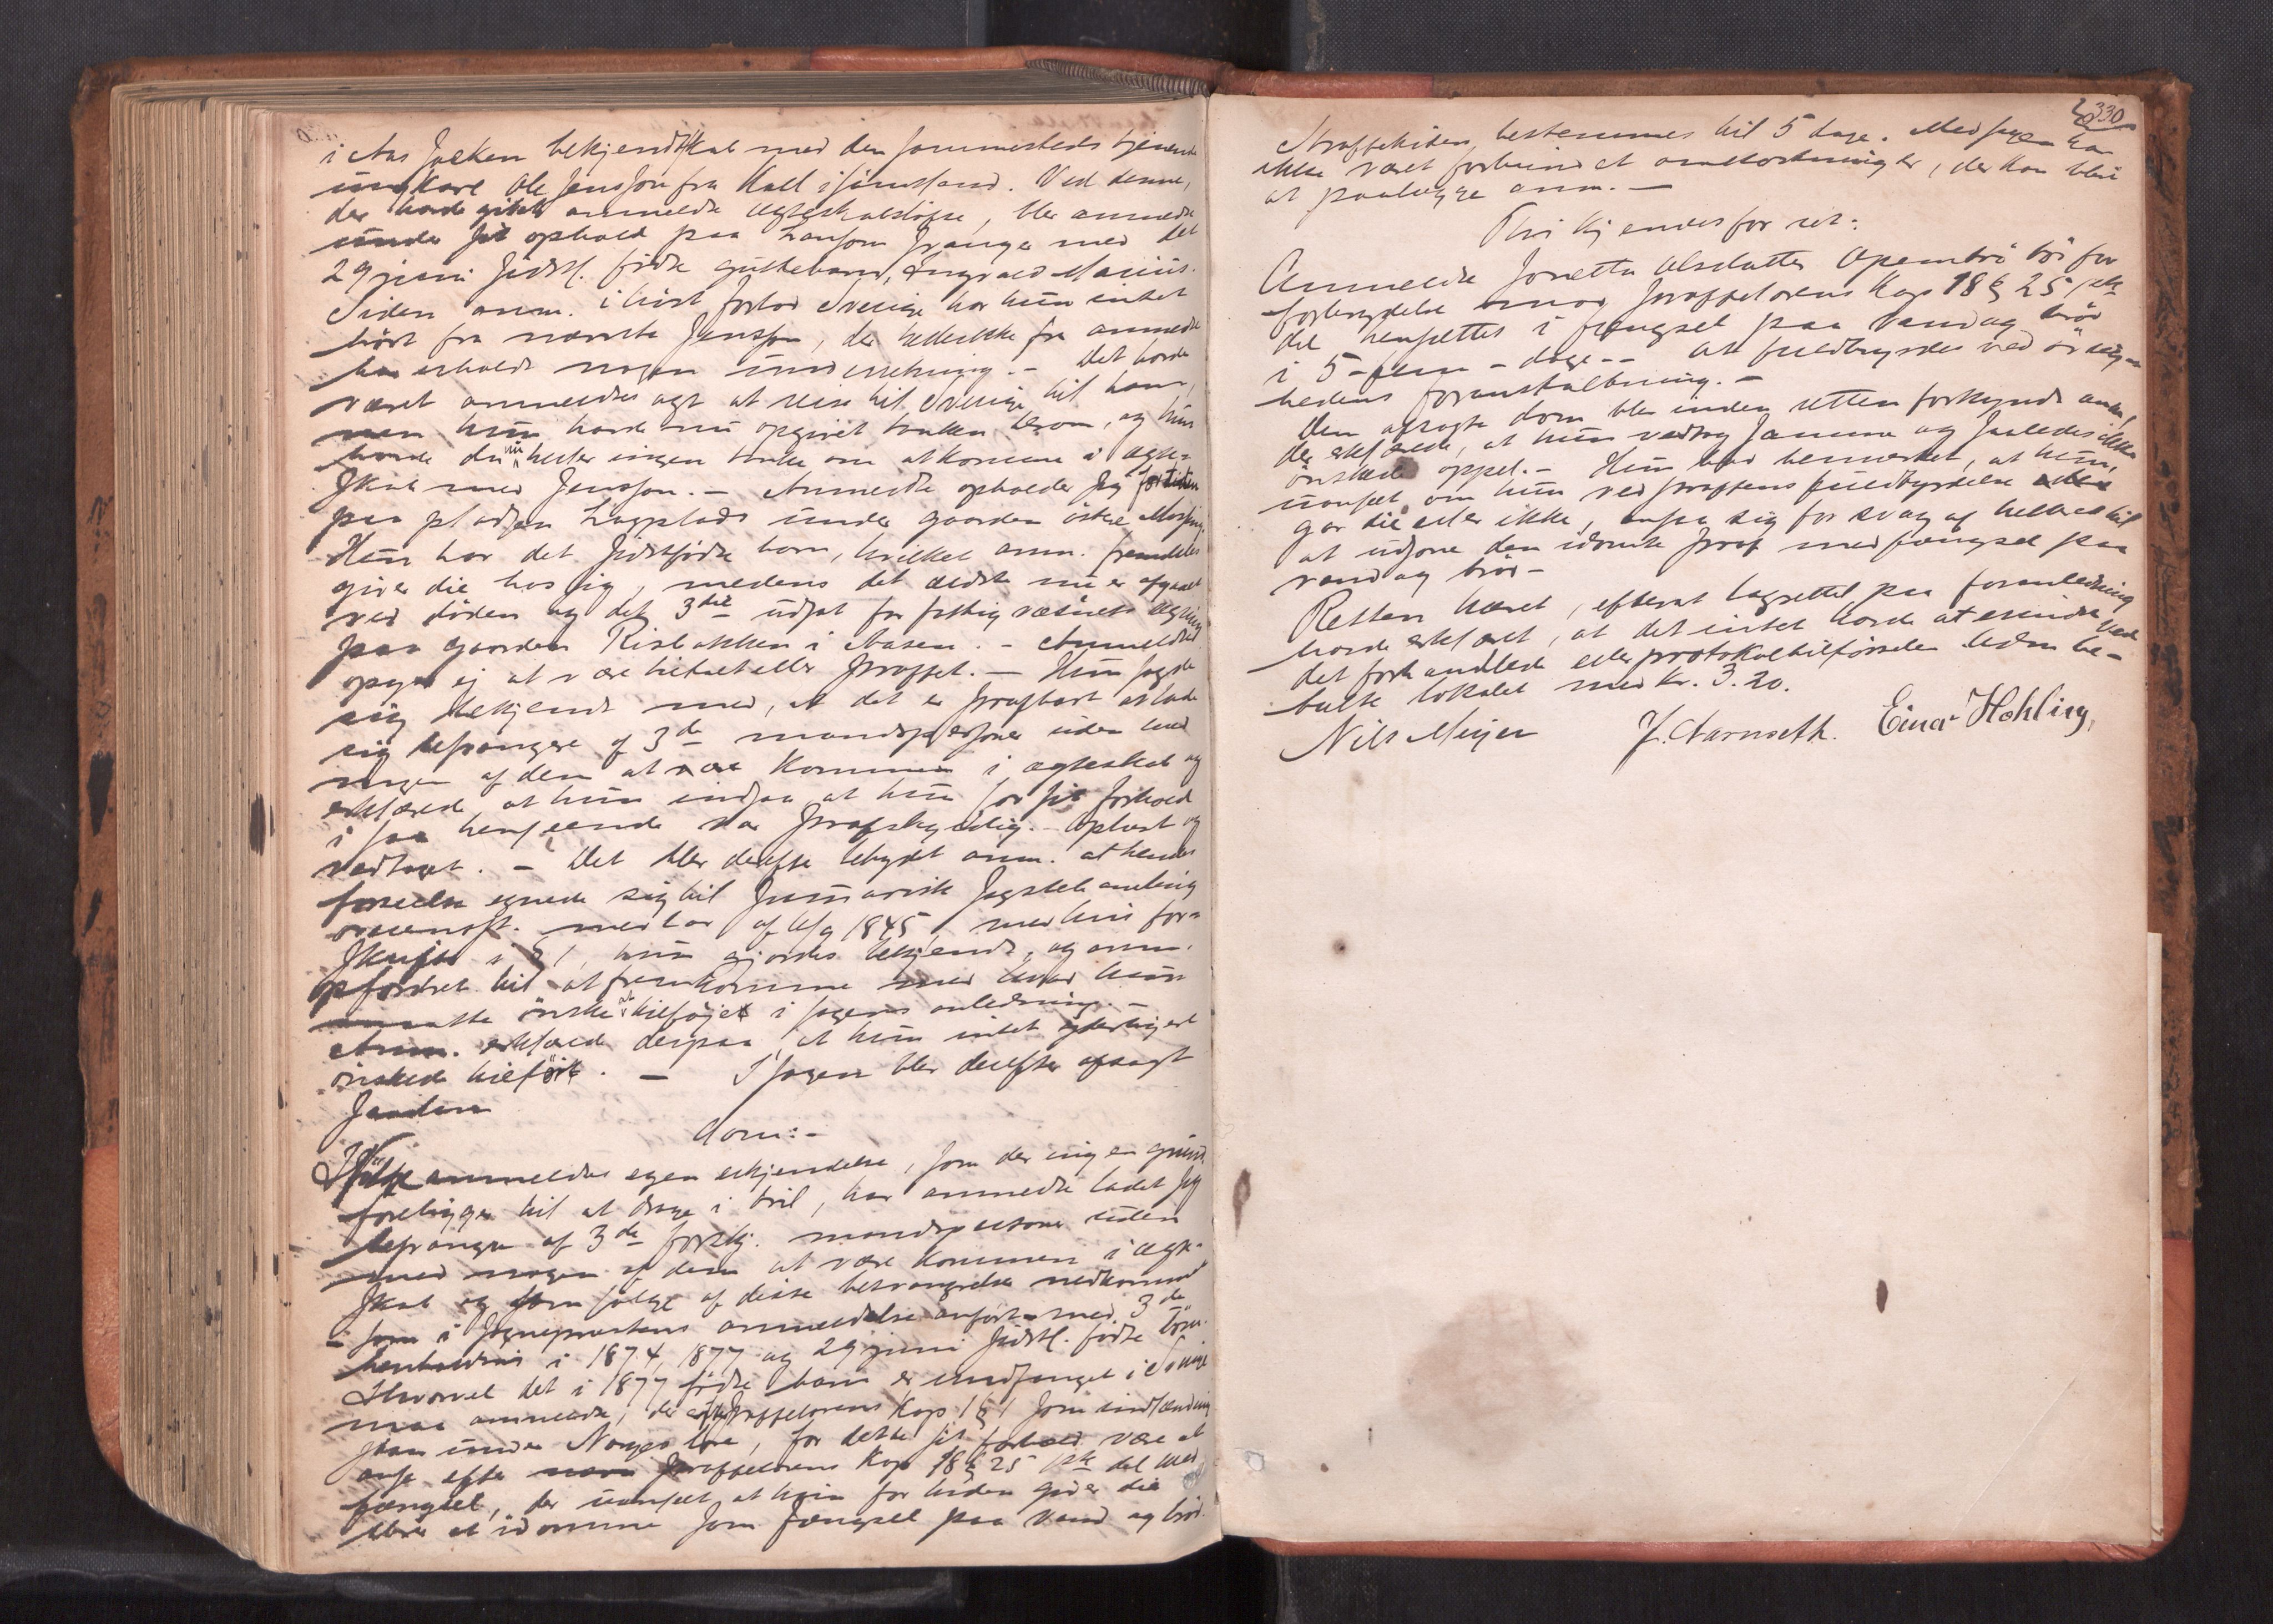 i Aas socken bekjendtskab med den sammesteds tjenende
ungkarl Ole Jensson fra Kall i Jämtland. Ved denne,
der havde givet anmeldte ægteskabsløfte, blev anmeldte
under sit ophold paa svanger med det
29 juni sidstl. fødte guttebarn, Ingvald Marius.
Siden anm. i høst forlod Sverige har hun intet
hørt fra nævnte Jensson, der hellerikke fra anmeldte
har erholdt nogen underretning. - Det havde
været anmeldtes agt at reise til Sverige til ham,
men hun havde nu opgivet tanken herom, og hun
havde du nu heller ingen tanke om at komme i ægte-
skab med Jensson. - Anmeldte opholder sig for tiden
paa pladsen under gaarden østre
Hun har det sidstfødte barn, hvilket anm. fremdeles
giver die hos sig, medens det ældste nu er afgaaet
ved døden og det 3die udsat for fattigvæsenets regning
paa gaarden Risbakken i Aasen. - Anmeldte
opgav ej at være tiltalt eller straffet. - Hun sagde
sig bekjendt med, at det er strafbart at lade
sig besvangre af 3de mandspersoner uden med
nogen af dem at være kommen i ægteskab og
erklærede at hun indsaa at hun for sit forhold
i saa henseende var strafskyldig. - Oplæst og
vedtaget. - Det blev derefter betydet anm. at hendes
forseelse egnede sig til summarisk sagsbehandling
overensst. med lov af 6/9 1845, med hvis for-
skrifter i § 1, hun gjordes bekjendt, og anm.
opfordret til at fremkomme med hvad hun
maatte ønske at tilføjet i sagens anledning. -
Anm. erklærede derpaa, at hun intet yderligere
ønskede tilført. - I sagen blev derefter afsagt
saadan
dom: -
Ifølge anmeldtes egen erkjendelse, som der ingen grund
foreligger til at drage i tvil, har anmeldte ladet sig
besvangre af 3de forskj. mandspersoner uden
med nogen af dem at være kommen i ægte-
skab og som følge af disse besvangrelser nedkommet
- som i sogneprestens anmeldelse anført - med 3de
henholdsvis i 1874, 1877 og 29 juni sidstl. fødte børn.
Hvorvel det i 1877 fødte barn er undfanget i Sverige
maa anmeldte, der efter straffelovens kap 1 § 1 som indlænding
staar under Norges love, for dette sit forhold være at
anse efter straffelovens kap 18 § 25 1ste del med
fængsel, der uanseet at hun for tiden giver die
bliver at idømme som fængsel paa vand og brød.
330
Straffetiden bestemmes til 5 dage. Med sagen har
ikke været forbundet omkostninger, der kan blive
at paalægge anm. -
Thi kjendes for ret:
Anmeldte Jonetta Olsdatter Opembrö bør for
forbrydelse mod straffelovens kap 18 § 25 1ste
del hensættes i fængsel paa vand og brød
i 5 - fem - dage - - At fuldbyrdes ved øvrig-
hedens foranstaltning. -
Den afsagte dom blev inden retten forkyndt anm.,
der erklærede, at hun vedtog samme og saaledes ikke
ønskede appel. - Hun bad bemærket, at hun,
uanseet om hun ved straffens fuldbyrdelse
gav die eller ikke, ansaa sig for svag af helbred til
at udsone den idømte straf med fængsel paa
vand og brød -
Retten hævet, efterat lagrettet paa foranledning
havde erklæret, at det intet havde at erindre ved
det forhandlede eller protokoltilførselen. Udm be-
talte lokalet med kr. 3.20.
Nils Meijer J. Aarnseth. Einar Hohling,